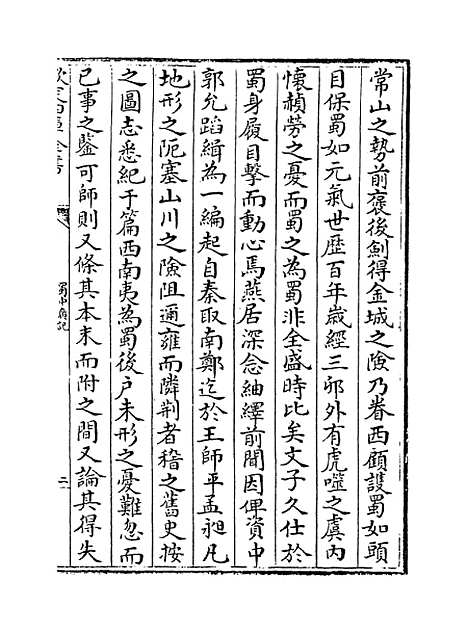 常山之勢前褒後劍得金城之險乃眷西顧護蜀如頭
目保蜀如元氣世歴百年嵗經三邜外有虎噬之虞内
懷赬勞之憂而蜀之為蜀非全盛時比矣文子久仕於
蜀身履目擊而動心焉燕居深念紬繹前聞因俾資中
郭允蹈緝為一編起自秦取南鄭迄於王師平孟昶凡
地形之阨塞山川之險阻通雍而隣荆者稽之舊史按
之圖志悉紀于篇西南夷為蜀後户未形之憂難忽而
已事之鑒可師則又條其本末而附之間又論其得失
欽定四庫全書
二